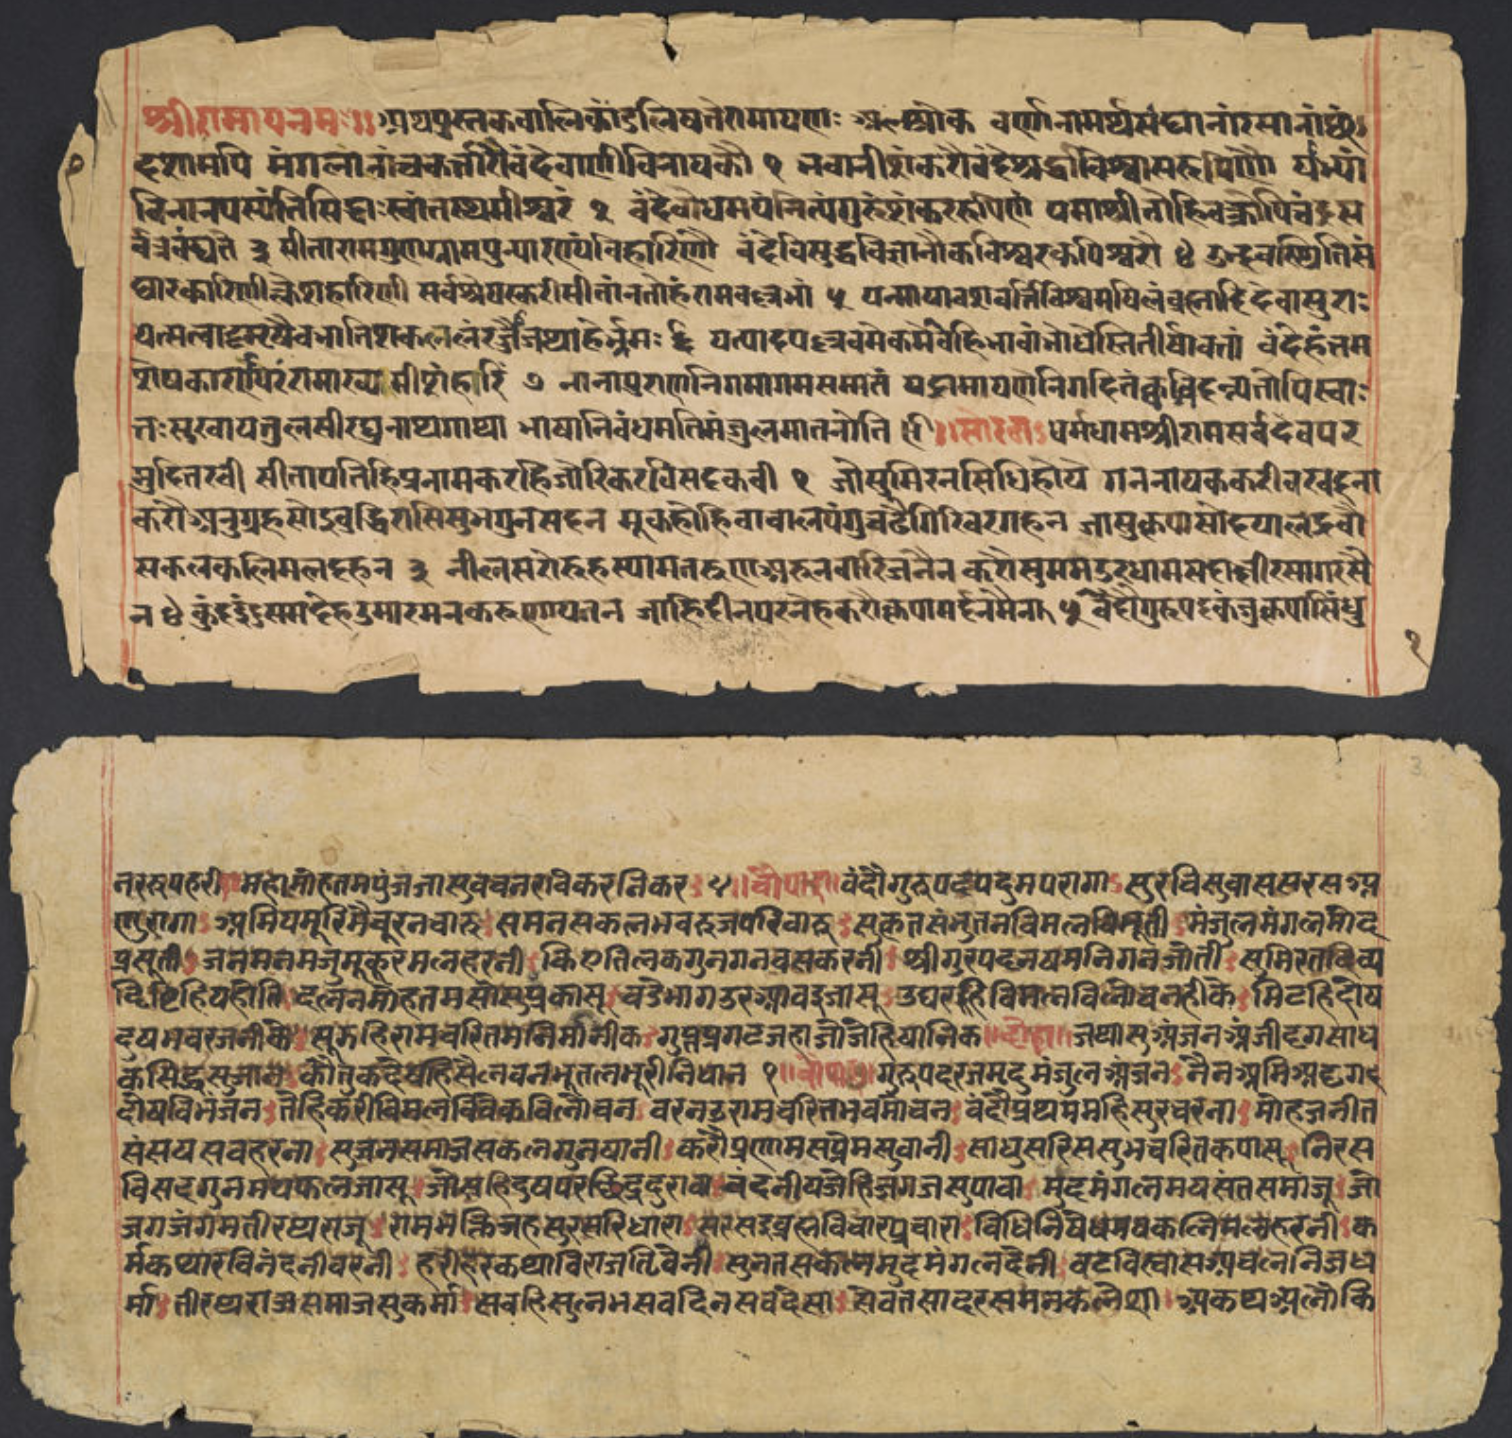 श्रीरामायनमः ॥ अथ पुस्तक वालिकांड लिषते रामायणः श्लोक वर्णानामर्थसंघानां रसानां छं
दशामपि मंगलानां च कर्त्तारौ वंदे वाणी विनायकौ १ भवानीशंकरौ वंदे श्रद्धाविश्वासरूपिणौ याभ्यां
विना न पस्यंति सिद्धाः स्वांतस्थमीश्वरं २ वंदे वोधमयं नित्यं गुरुं शंकररूपिणं यमाश्रीतो हि वक्रोपि चंद्र स
र्वत्र वंद्यते ३ सीतारामगुणग्राम पुन्यारण्य विहारिणौ वंदे विसुद्ध विज्ञानौ कविश्वर कपिश्वरौ ४ उद्भवस्थितिसं
घारकारिणीं क्लेशहारिणी सर्वश्रेयस्करी सीतां नतोहं रामवल्लभां ५ यन्मायावशवर्त्ति विश्वमषिलं व्रह्मादिदेवासुराः
यत्सत्वादमृषैव भाति शकलं रज्जौ जथाहेर्भ्रमः ६ यत्पादपल्लवमेकमेव हि भावांभोधेस्तितीर्षावतां वंदेहं तम
शेषकारणपरं रामाख्यमीशं हरिं ७ नानापुराणनिगमागमसमातं यद्रामायणे निगदितं क्वचिदन्यतोपि स्वाः
तः सुखाय तुलसी रघुनाथगाथा भाषानिवंधमतिमंजुलमातनोति ॥ सोरठा धर्मधाम श्रीराम सर्वदेव पर
मुदित रवी सीतापतिहि प्रनाम करहि जोरि कर विसद कवी १ जो सुमिरन सिधि होय गननायक करीवर वदना
करौ अनुग्रह सोइ वुद्धिरासि सुभ गुन सदन मूक होहि वाचाल पंगु चढै गिरिवर गहन जासु कृपा सो दयाल द्रवौ
सकल कलिमल दहन ३ नील सरोरुह स्याम तरुण अरुन वारिज नैन करौ सु मम उर धाम सदा क्षीरसागर सै
न ४ कुंद इंदु सम देह उमारमन करुणायतन जाहि दीन पर नेह करौ कृपा मर्दन मैन ५ वंदौ गुरुपद कंज कृपासिंधु
नररूप हरी महामोह तम पुंज जासु वचन रविकर निकर ५ ॥ चौपाई ॥ वंदौ गुरुपद पदुम परागा सुरुचि सुवास सरस अ
णुरागा अमिय मूरिमै चूरन चारु समन सकल भव रुज परिवारु सुकृत संभुतन विमल विभूती मंजुल मंगल मोद
प्रसूती जनमन मंजु मुकुर मल हरनी किए तिलक गुनगन वस करनी श्रीगुरपद नष मनिगन जोती सुमिरत दिव्य
द्रिष्टि हिय होति दलन मोह तम सो सुप्रकासू वडे भाग उर आवइ जासू उघरहि विमल विलोचन ही के मिटहि दोष
दुष भव रजनी के सूझहि रामचरित मनि मानीक गुप्त प्रगट जहा जो जेहि षानिक ॥ दोहा ॥ जथा सुअंजन अंजी दृग साध
क सिद्ध सुजान कौतक देषहि सैल वन भूतल भूरी निधान १ ॥ चौपाई ॥ गुरुपद रज मृदु मंजुल अंजन नैन अमिअ दृग
दोष विभंजन तेहि करी विमल विवेक विलोचन वरनउ रामचरित भवमोचन वंदौ प्रथम महिसुर चरना मोह जनीत
संसय सव हरना सुजन समाज सकल गुन षानी करौ प्रणाम सप्रेम सुवानी साधु सरिस सुभ चरित कपासू निरस
विसद गुनमय फल जासू जो सहि दुष पर छिद्र दुरावा वंदनीय जेहि जग जसु पावा मुद मंगलमय संत समाजू जो
जग जंगम तीरथराजू रामभक्ति जह सुरसरि धारा सरसइ व्रह्म विचार प्रचारा विधि निषेधमय कलिमल हरनी क
र्मकथा रविनंदनी वरनी हरीहर कथा विराजति वेनी सुनत सकल मुद मंगल देनी वट विस्वास अचल निज ध
र्मा तीरथराज समाज सुकर्मा सवहि सुलभ सव दिन सव देसा सेवत सादर समन कलेशा अकथ अलौकि